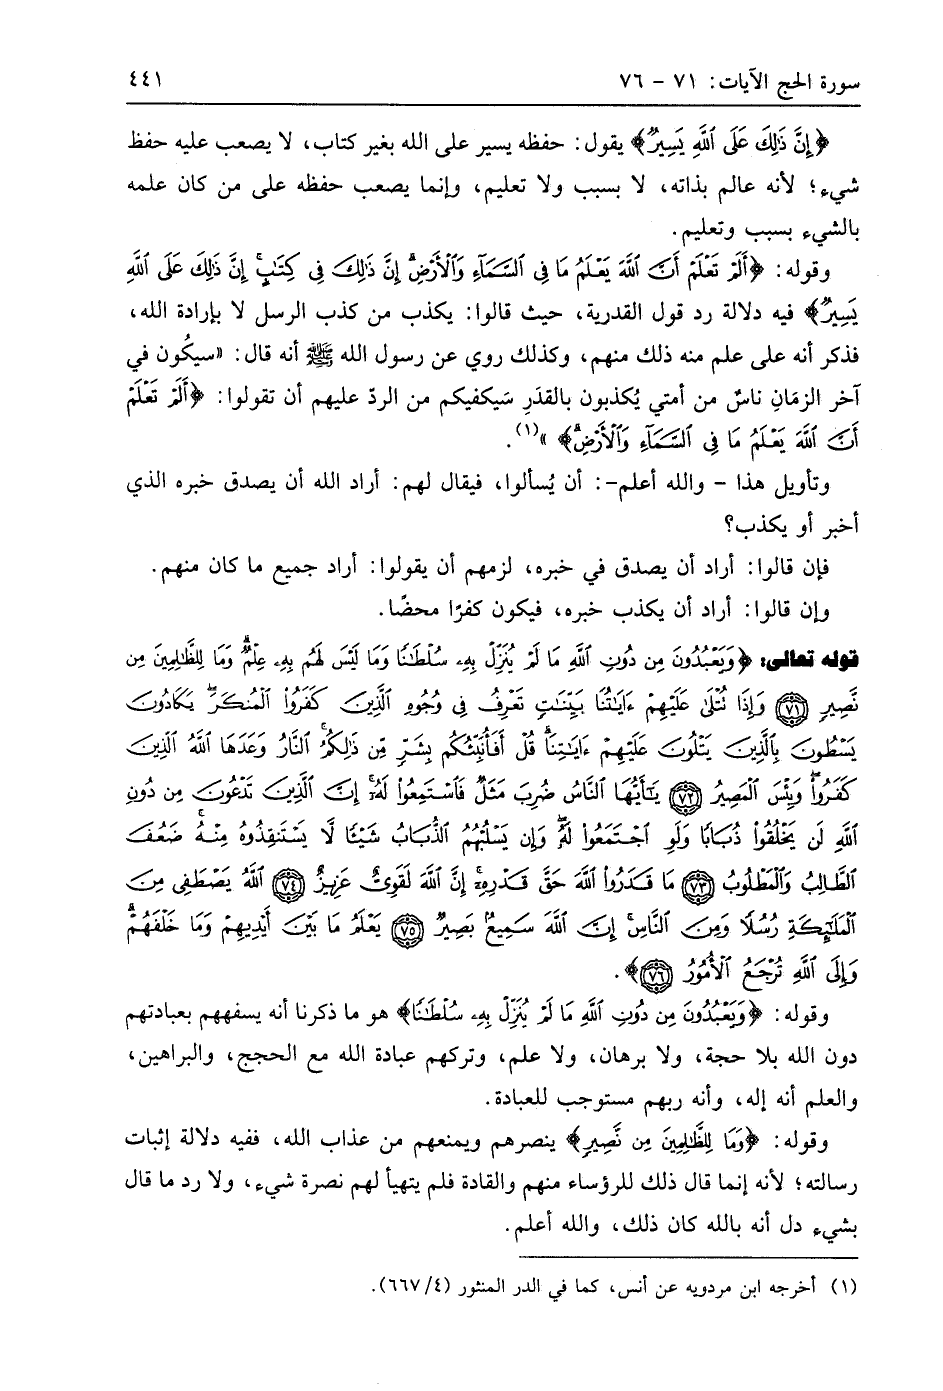 سورة الحج الآيات: ٧١ - ٧٦ ٤٤١
﴿إِنَّ ذَٰلِكَ عَلَى ٱللَّهِ يَسِيرٌ﴾ يقول: حفظه يسير على الله بغير كتاب، لا يصعب عليه حفظ
شيء؛ لأنه عالم بذاته، لا بسبب ولا تعليم، وإنما يصعب حفظه على من كان علمه
بالشيء بسبب وتعليم.
وقوله: ﴿أَلَمْ تَعْلَمْ أَنَّ ٱللَّهَ يَعْلَمُ مَا فِى ٱلسَّمَآءِ وَٱلْأَرْضِۗ إِنَّ ذَٰلِكَ فِى كِتَٰبٍۚ إِنَّ ذَٰلِكَ عَلَى ٱللَّهِ
يَسِيرٌ﴾ فيه دلالة رد قول القدرية، حيث قالوا: يكذب من كذب الرسل لا بإرادة الله،
فذكر أنه على علم منه ذلك منهم، وكذلك روي عن رسول الله ﷺ أنه قال: «سيكُون في
آخر الزمَانِ ناسٌ من أمتي يُكذبون بالقدَرِ سَيكفيكم من الردّ عليهم أن تقولوا: ﴿أَلَمْ تَعْلَمْ
أَنَّ ٱللَّهَ يَعْلَمُ مَا فِى ٱلسَّمَآءِ وَٱلْأَرْضِۗ﴾»(١).
وتأويل هذا - والله أعلم-: أن يُسألوا، فيقال لهم: أراد الله أن يصدق خبره الذي
أخبر أو يكذب؟
فإن قالوا: أراد أن يصدق في خبره، لزمهم أن يقولوا: أراد جميع ما كان منهم.
وإن قالوا: أراد أن يكذب خبره، فيكون كفرًا محضًا.
قوله تعالى: ﴿وَيَعْبُدُونَ مِن دُونِ ٱللَّهِ مَا لَمْ يُنَزِّلْ بِهِۦ سُلْطَٰنًا وَمَا لَيْسَ لَهُم بِهِۦ عِلْمٌۗ وَمَا لِلظَّٰلِمِينَ مِن
نَّصِيرٍ ﴿٧١﴾ وَإِذَا تُتْلَىٰ عَلَيْهِمْ ءَايَٰتُنَا بَيِّنَٰتٍ تَعْرِفُ فِى وُجُوهِ ٱلَّذِينَ كَفَرُوا۟ ٱلْمُنكَرَۖ يَكَادُونَ
يَسْطُونَ بِٱلَّذِينَ يَتْلُونَ عَلَيْهِمْ ءَايَٰتِنَاۗ قُلْ أَفَأُنَبِّئُكُم بِشَرٍّ مِّن ذَٰلِكُمُۚ ٱلنَّارُ وَعَدَهَا ٱللَّهُ ٱلَّذِينَ
كَفَرُوا۟ۖ وَبِئْسَ ٱلْمَصِيرُ ﴿٧٢﴾ يَٰٓأَيُّهَا ٱلنَّاسُ ضُرِبَ مَثَلٌ فَٱسْتَمِعُوا۟ لَهُۥٓۚ إِنَّ ٱلَّذِينَ تَدْعُونَ مِن دُونِ
ٱللَّهِ لَن يَخْلُقُوا۟ ذُبَابًا وَلَوِ ٱجْتَمَعُوا۟ لَهُۥۖ وَإِن يَسْلُبْهُمُ ٱلذُّبَابُ شَيْـًٔا لَّا يَسْتَنقِذُوهُ مِنْهُۚ ضَعُفَ
ٱلطَّالِبُ وَٱلْمَطْلُوبُ ﴿٧٣﴾ مَا قَدَرُوا۟ ٱللَّهَ حَقَّ قَدْرِهِۦٓۗ إِنَّ ٱللَّهَ لَقَوِىٌّ عَزِيزٌ ﴿٧٤﴾ ٱللَّهُ يَصْطَفِى مِنَ
ٱلْمَلَٰٓئِكَةِ رُسُلًا وَمِنَ ٱلنَّاسِۚ إِنَّ ٱللَّهَ سَمِيعٌۢ بَصِيرٌ ﴿٧٥﴾ يَعْلَمُ مَا بَيْنَ أَيْدِيهِمْ وَمَا خَلْفَهُمْۗ
وَإِلَى ٱللَّهِ تُرْجَعُ ٱلْأُمُورُ ﴿٧٦﴾﴾.
وقوله: ﴿وَيَعْبُدُونَ مِن دُونِ ٱللَّهِ مَا لَمْ يُنَزِّلْ بِهِۦ سُلْطَٰنًا﴾ هو ما ذكرنا أنه يسفههم بعبادتهم
دون الله بلا حجة، ولا برهان، ولا علم، وتركهم عبادة الله مع الحجج، والبراهين،
والعلم أنه إله، وأنه ربهم مستوجب للعبادة.
وقوله: ﴿وَمَا لِلظَّٰلِمِينَ مِن نَّصِيرٍ﴾ ينصرهم ويمنعهم من عذاب الله، ففيه دلالة إثبات
رسالته؛ لأنه إنما قال ذلك للرؤساء منهم والقادة فلم يتهيأ لهم نصرة شيء، ولا رد ما قال
بشيء دل أنه بالله كان ذلك، والله أعلم.
(١) أخرجه ابن مردويه عن أنس، كما في الدر المنثور (٤/ ٦٦٧).